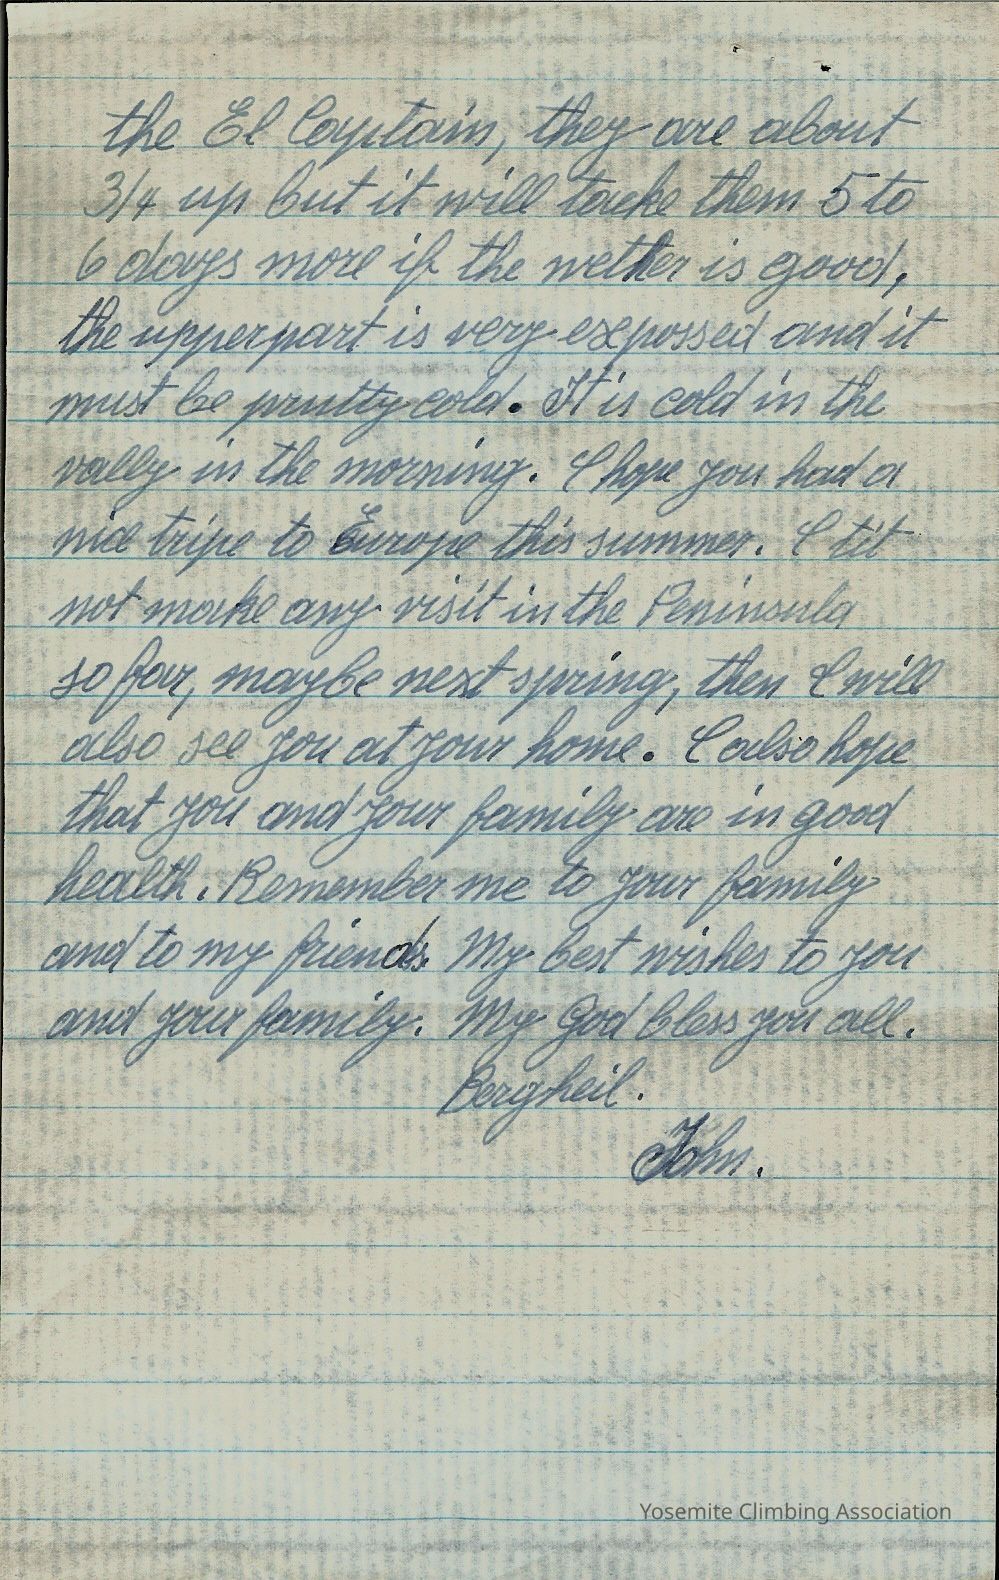 the El Captain, they are about
3/4 up but it will take them 5 to
6 days more if the wether is good,
the upperpart is very expossed and it
must be prutty cold. It is cold in the
vally in the morning. I hope you had a
nice tripe to Europe this summer. I tit
not make any visit in the Peninsula
so far, maybe next spring, then I will
also see you at your home. I also hope
that you and your family are in good
health. Remember me to your family
and to my friends. My best wishes to you
and your family. My God bless you all.
Bergheil.
John.
Yosemite Climbing Association